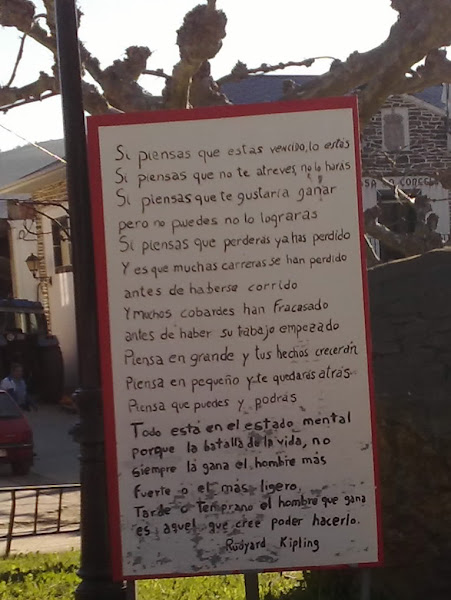 Si piensas que estás vencido, lo estás
Si piensas que no te atreves, no lo harás
Si piensas que te gustaría ganar
pero no puedes no lo lograras
Si piensas que perderas ya has perdido
Y es que muchas carreras se han perdido
antes de haberse corrido
Y muchos cobardes han fracasado
antes de haber su trabajo empezado
Piensa en grande y tus hechos crecerán
Piensa en pequeño y te quedarás atrás
Piensa que puedes y podrás
Todo está en el estado mental
porque la batalla de la vida, no
siempre la gana el hombre más
fuerte o el más ligero.
Tarde o temprano el hombre que gana
es aquel que cree poder hacerlo.
Rudyard Kipling